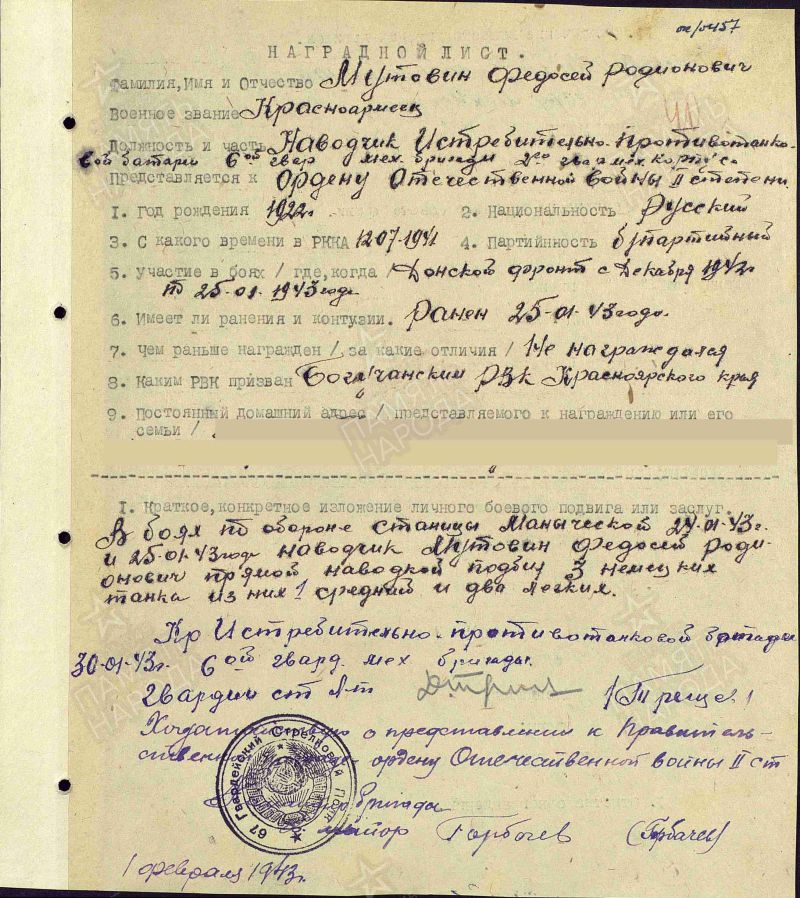 НАГРАДНОЙ ЛИСТ.
Фамилия, Имя и Отчество Мутовин Федосей Родионович
Военное звание Красноармеец
Должность и часть Наводчик Истребительно-противотанко-
вой батареи 6ой гвар мех. бригады 2го гвар мех корпуса
Представляется к Ордену Отечественной войны II степени.
1. Год рождения 1922г. 2. Национальность Русский
3. С какого времени в РККА 12.07-1941 4. Партийность б/партийный
5. Участие в боях / где, когда / Донской фронт с Декабря 1942г.
по 25-01-1943 года
6. Имеет ли ранения и контузии. Ранен 25-01-43 года.
7. Чем раньше награжден / за какие отличия / Не награждался
8. Каким РВК призван Богучанским РВК Красноярского края
9. Постоянный домашний адрес / представляемого к награждению или его
семьи /
I. Краткое, конкретное изложение личного боевого подвига или заслуг.
В боях по обороне станицы Манычской 24-01-43г.
и 25-01-43 года наводчик Мутовин Федосей Роди-
онович прямой наводкой подбил 3 немецких
танка из них 1 средний и два легких.
Кр Истребительно-противотанковой батареи
30-01-43г. 6ой гвард. мех бригады.
гвардии ст л-т
Ходатайствую о представлении к Правитель-
ственной ордену Отечественной войны II ст
67 Гвардейский Стрелковый Полк
бригады
майор Горбачев (Горбачев)
1 февраля 1943г.
ПАМЯТЬ
НАРОДА